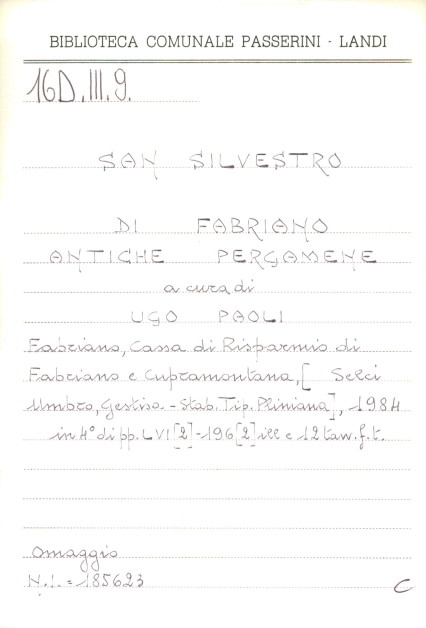 BIBLIOTECA COMUNALE PASSERINI - LANDI
16D.III.9.
SAN SILVESTRO
DI FABRIANO
ANTICHE PERGAMENE
a cura di
UGO PAOLI
Fabriano, Cassa di Risparmio di
Fabriano e Cupramontana, [ Selci
Umbro, Gestisa. - Stab. Tip. Pliniana], 1984
in 4° di pp. LVI [2] - 196 [2] ill e 12 tavv. f. t.
Omaggio
N.I. = 185623
C